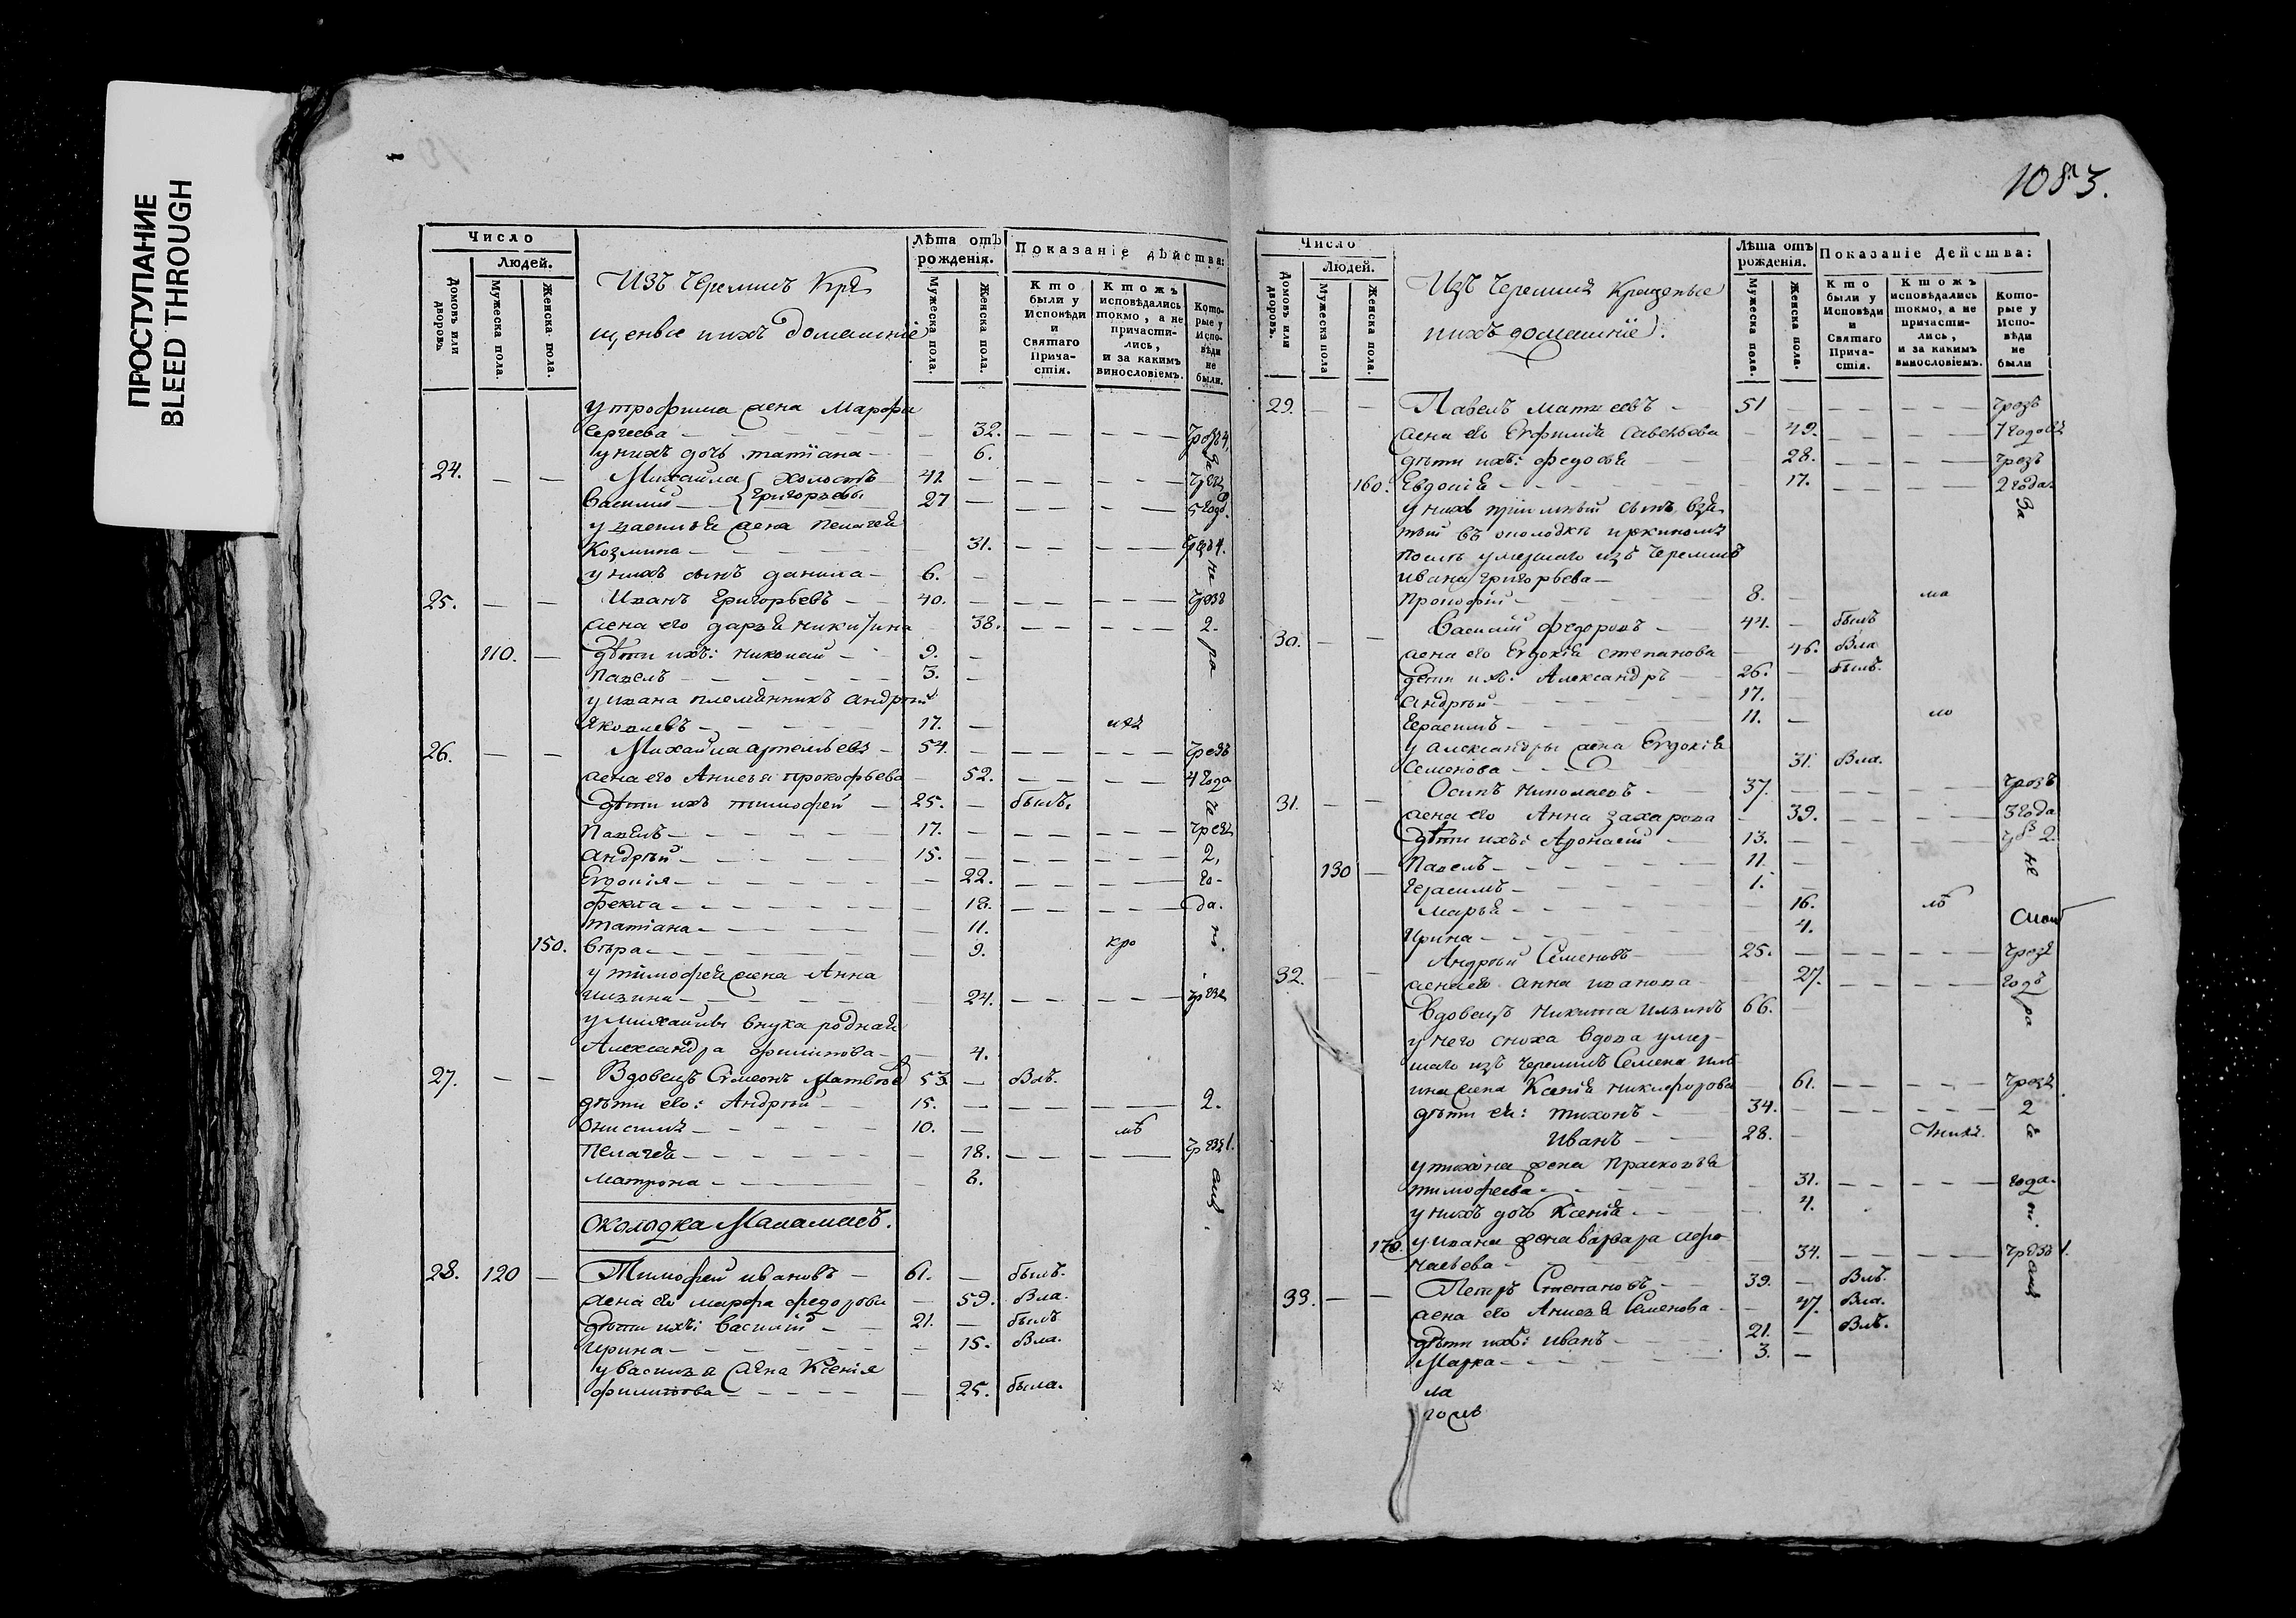 ПРОСТУПАНИЕ
BLEED THROUGH
1083.
Число
Людей.
Домовъ или дворовъ
Мужеска пола.
Женска пола.
Изъ Черемисъ Кре
щеные ихъ домашніе
Лѣта отъ рожденія.
Мужеска пола.
Женска пола.
Показаніе дѣйства:
Кто были у Исповѣди и Святаго Причастія.
Ктожъ исповѣдались токмо, а не причастились, и за какимъ винословіемъ.
Которые у Исповѣди не были.
у трофима жена Марфа
Сергеева 32. чрезъ 4.
у нихъ дочь татіана 6.
24. Михайла холостъ 41. чрезъ
Василий Григорьевы 27 5 год.
у василья жена Пелагея
Козмина 31. чрезъ 4.
у нихъ сынъ данила 6.
25. Иванъ Григорьевъ 40. чрезъ
жена его дарья никитина 38. 2.
110. дѣти ихъ: николай 9.
Павелъ 3.
у ивана племянникъ андрей
Яковлевъ 17.
26. Михайла артемьевъ 54. чрезъ
жена его Анисья прокофьева 52. 4 года
дѣти ихъ тимофей 25. былъ.
Павелъ 17. чрезъ
андрей 15. 2.
Евдокія 22. го-
фекла 18. да.
татіана 11.
150. вѣра 9. кро
у тимофея жена Анна
ильина 24. чрезъ
у михайлы внука родная
Александра филипова 4.
27. Вдовецъ Симеонъ Матвеевъ 53. Былъ.
дѣти его: Андрей 15. 2.
Онисимъ 10.
Пелагея 18. чрезъ 1.
Матрона 8.
околодка Маламасъ.
28. 120 Тимофей ивановъ 61. былъ.
жена его марфа федорова 59. Была.
дѣти ихъ: василий 21. былъ
Ирина 15. Была.
у василья жена Ксенія
филипова 25. была.
Число
Людей.
Домовъ или дворовъ.
Мужеска пола
Женска пола.
Изъ Черемисъ Крещеные
ихъ домашніе.
Лѣта отъ рожденія.
Мужеска пола.
Женска пола.
Показаніе Действа:
Кто были у Исповѣди и Святаго Причастія.
Ктожъ исповѣдались токмо, а не причастились, и за какимъ винословіемъ.
Которые у Исповѣди не были
29. Павелъ матвеевъ 51 чрезъ
жена его Евфимія савельева 49. 7 годовъ
дѣти ихъ: федосья 28. чрезъ
160. Евдокія 17. 2 года.
у нихъ пріимный сынъ взя
тый въ околодкѣ
послѣ умершаго изъ черемисъ
ивана григорьева
Прокофій 8. ма
30. Василий федоровъ 44. былъ
жена его Евдокія степанова 46. Была
дети ихъ: Александръ 26. былъ.
андрей 17.
Герасимъ 11. ло
у александры жена Евдокія
Семенова 31. Была.
31. Осипъ николаевъ 37. чрезъ
жена его Анна захарова 39. 3 года
дѣти ихъ: Афонасей 13. чрезъ 2.
130 Павелъ 11. не
Герасимъ 1.
марья 16.
Ирина 4.
32. Андрей Семеновъ 25. чрезъ
жена его анна иванова 27. годъ
Вдовецъ никита ильинъ 66.
у него сноха вдова умер-
шаго изъ черемисъ Семена иль
ина жена Ксенія никифорова 61. чрезъ
дѣти ея: тихонъ 34. 2
Иванъ 28.
у тихона жена Прасковья
тимофеева 31. года.
у нихъ дочь Ксенія 4.
170. у ивана жена варвара афо
насьева 34. чрезъ 1.
33. Петръ Степановъ 39. Былъ.
жена его Анисья Семенова 47. Была.
дѣти ихъ: иванъ 21. Былъ.
Марка 3.